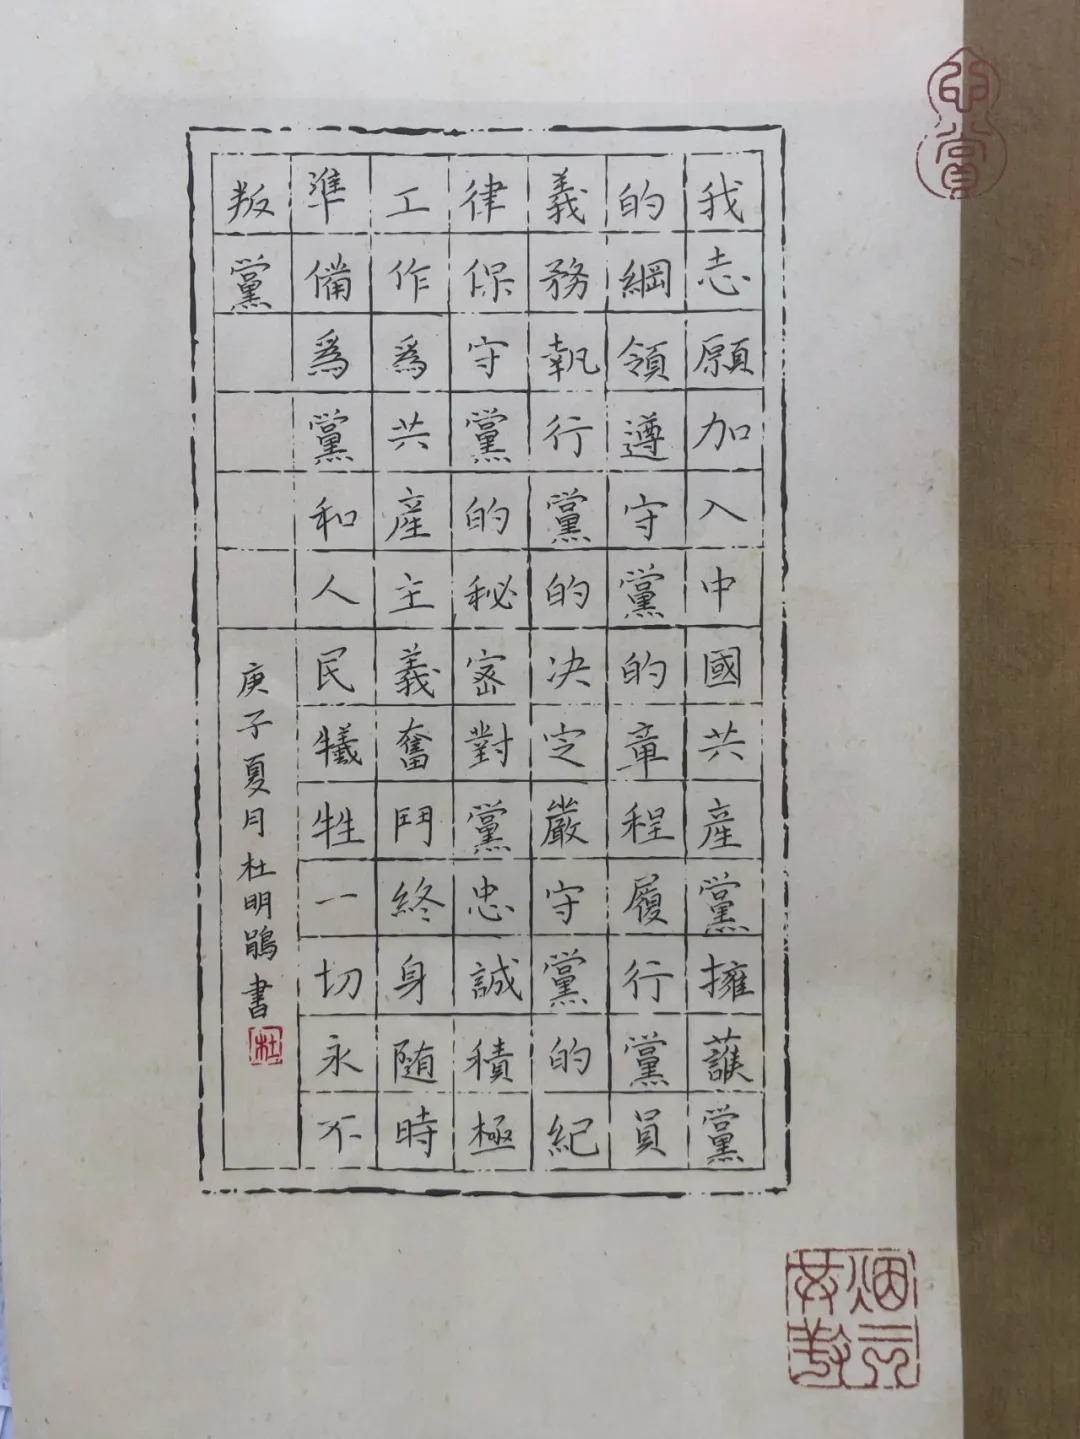 我志願加入中國共產黨擁護黨
的綱領遵守黨的章程履行黨員
義務執行黨的决定嚴守黨的紀
律保守黨的秘密對黨忠誠積極
工作爲共產主義奮鬥終身随時
準備爲黨和人民犧牲一切永不
叛黨
庚子夏月杜明鵑書
杜